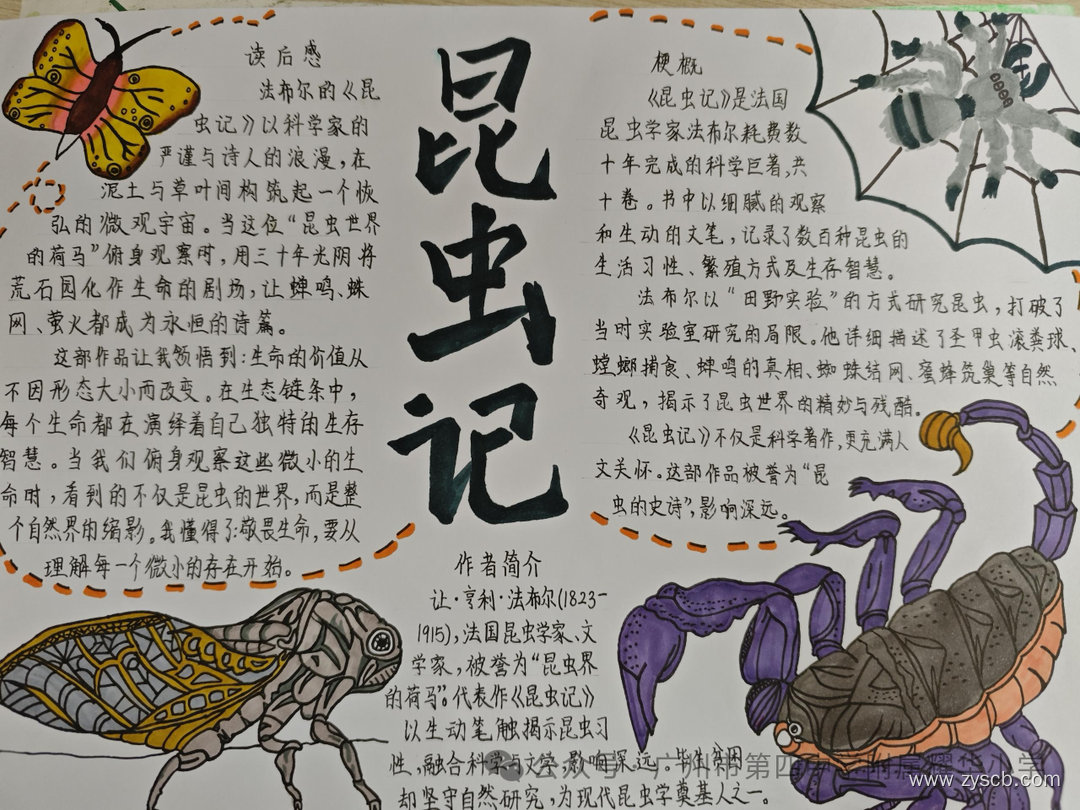 读后感
法布尔的《昆
虫记》以科学家的
严谨与诗人的浪漫，在
泥土与草叶间构筑起一个恢
弘的微观宇宙。当这位“昆虫世界
的荷马”俯身观察时，用三十年光阴将
荒石园化作生命的剧场，让蝉鸣、蛛
网、萤火都成为永恒的诗篇。
这部作品让我领悟到：生命的价值从
不因形态大小而改变。在生态链条中，
每个生命都在演绎着自己独特的生存
智慧。当我们俯身观察这些微小的生
命时，看到的不仅是昆虫的世界，而是整
个自然界的缩影。我懂得了：敬畏生命，要从
理解每一个微小的存在开始。
昆虫记
梗概
《昆虫记》是法国
昆虫学家法布尔耗费数
十年完成的科学巨著，共
十卷。书中以细腻的观察
和生动的文笔，记录了数百种昆虫的
生活习性、繁殖方式及生存智慧。
法布尔以“田野实验”的方式研究昆虫，打破了
当时实验室研究的局限。他详细描述了圣甲虫滚粪球、
螳螂捕食、蝉鸣的真相、蜘蛛结网、蜜蜂筑巢等自然
奇观，揭示了昆虫世界的精妙与残酷。
《昆虫记》不仅是科学著作，更充满人
文关怀。这部作品被誉为“昆
虫的史诗”，影响深远。
作者简介
让·亨利·法布尔(1823-
1915)，法国昆虫学家、文
学家，被誉为“昆虫界
的荷马”。代表作《昆虫记》
以生动笔触揭示昆虫习
性，融合科学与文学，影响深远。毕生贫困
却坚守自然研究，为现代昆虫学奠基人之一。
公众号·广州市第四
www.zyscb.com